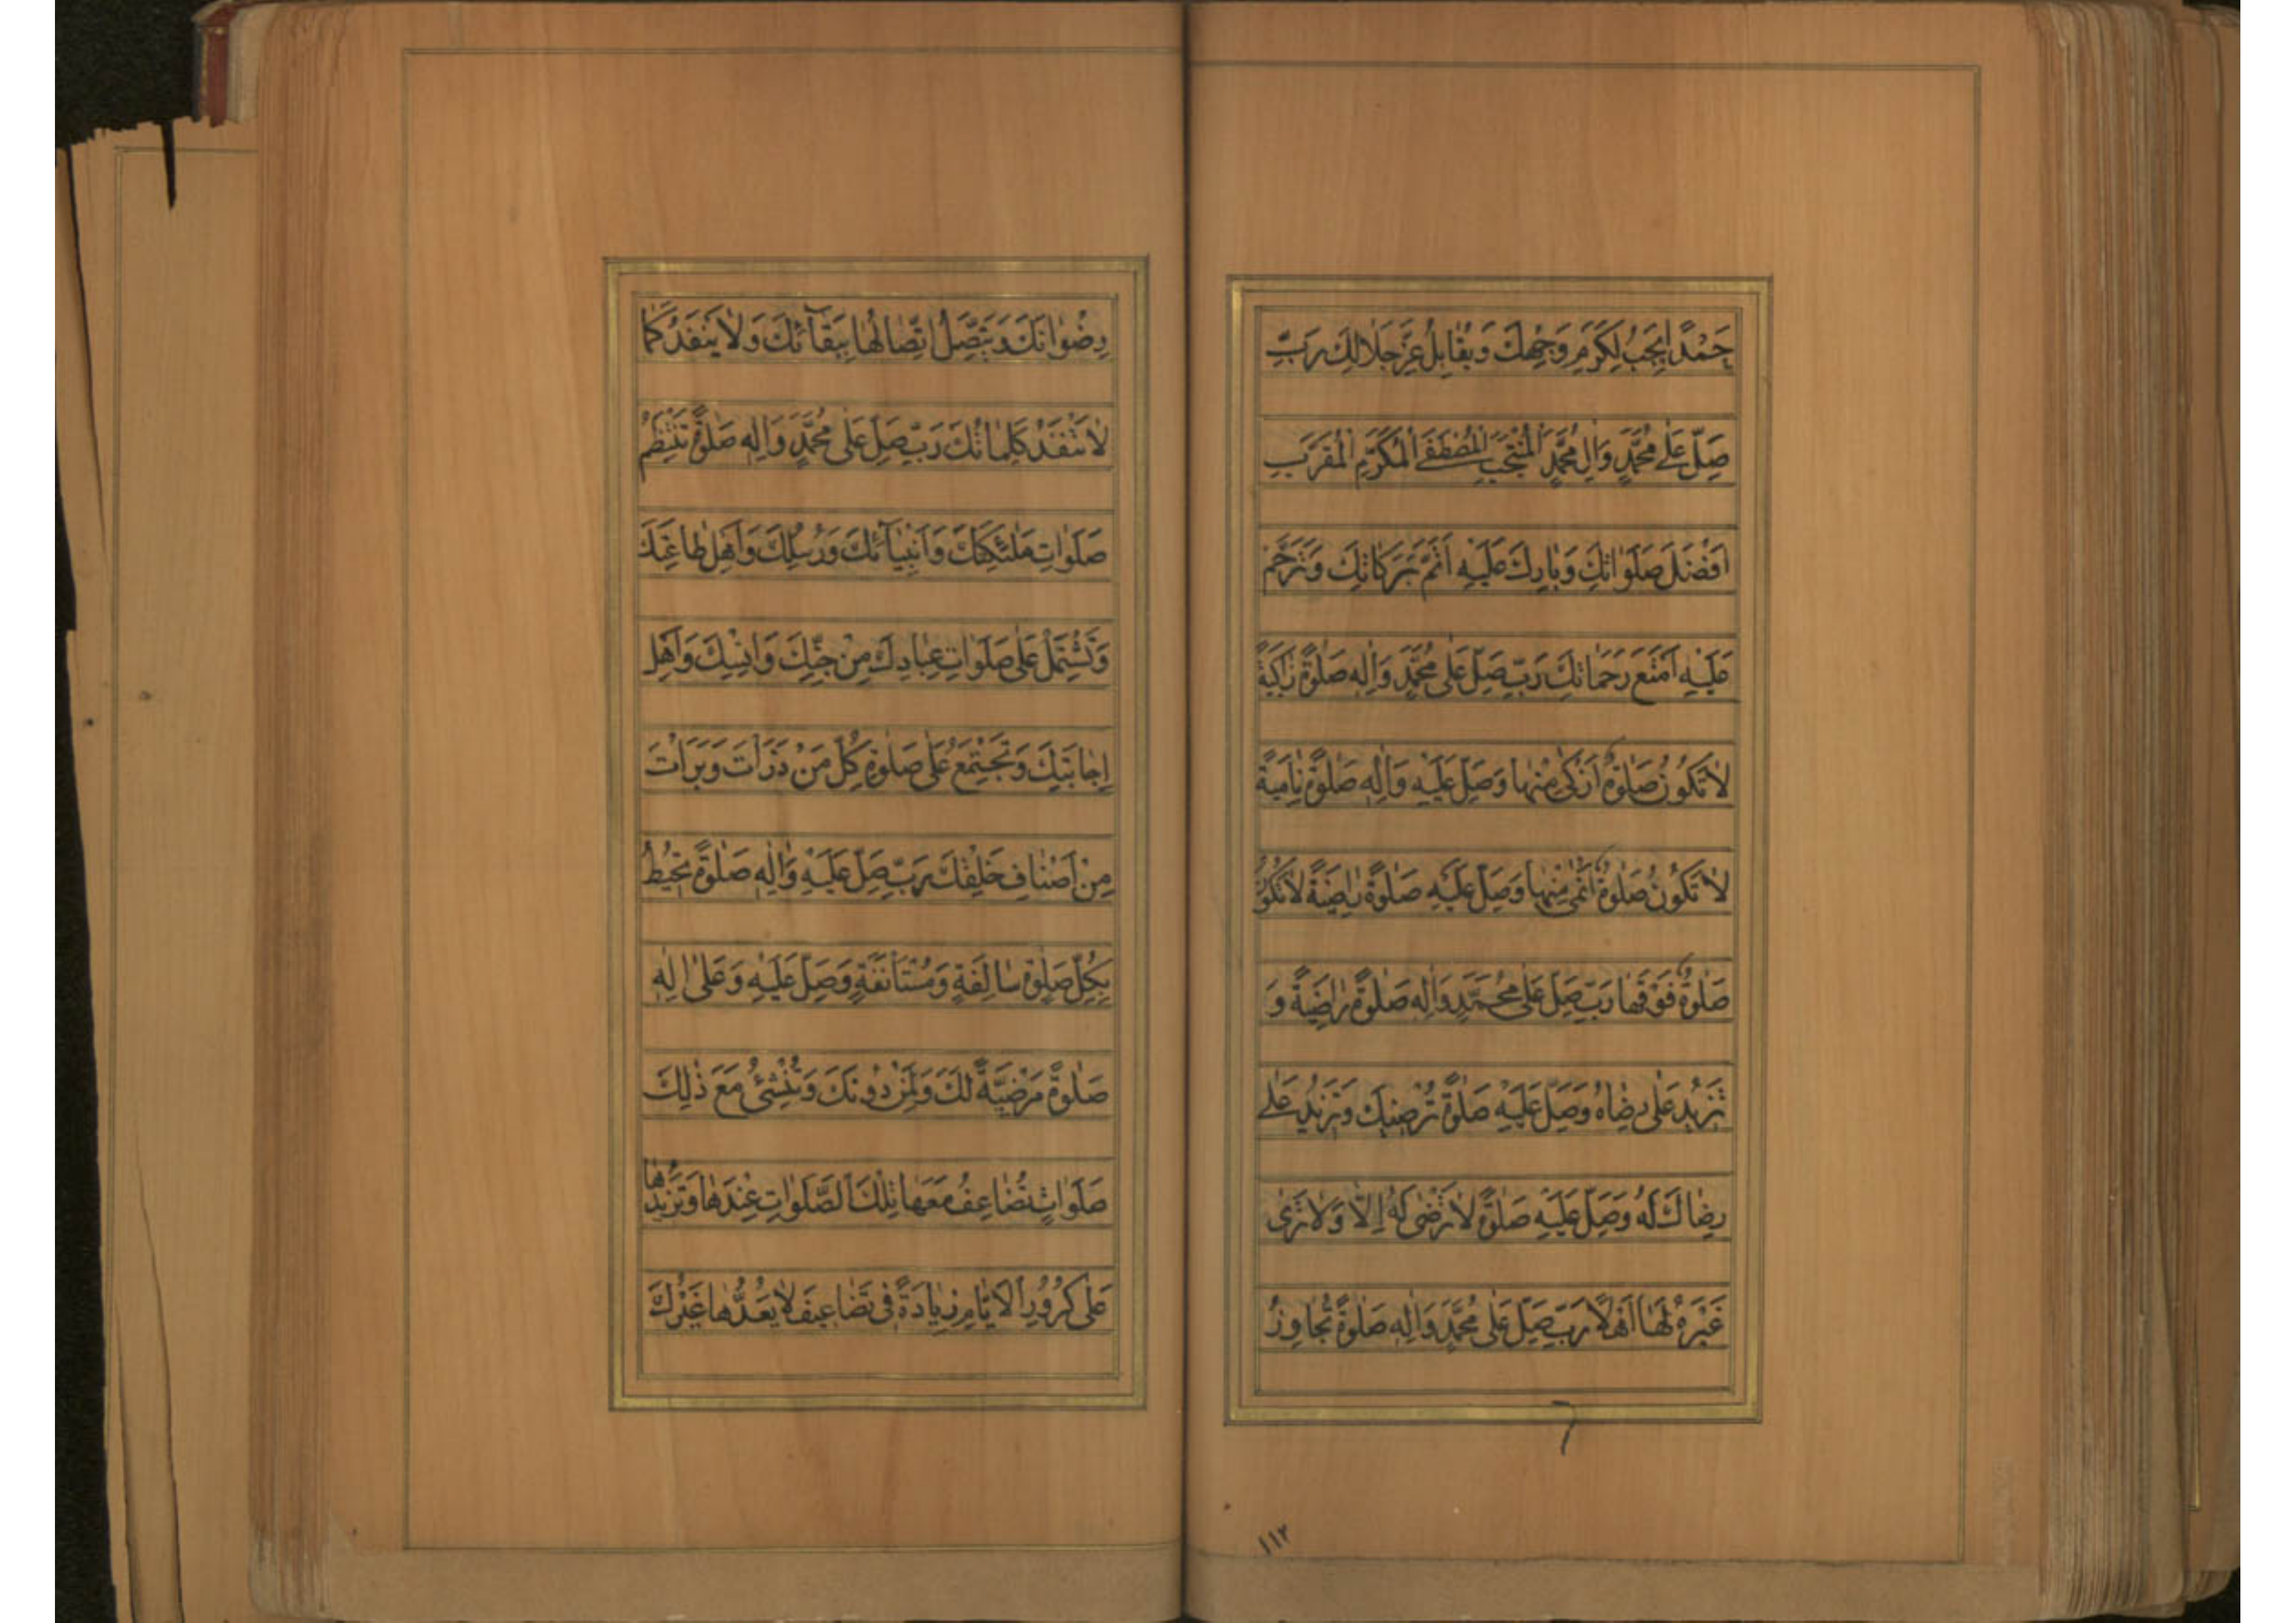 حَمْدًا يَجِبُ لِكَرَمِ وَجْهِكَ وَيُقَابِلُ عِزَّ جَلَالِكَ رَبِّ
صَلِّ عَلٰى مُحَمَّدٍ وَآلِ مُحَمَّدٍ الْمُنْتَجَبِ الْمُصْطَفَى الْمُكَرَّمِ الْمُقَرَّبِ
اَفْضَلَ صَلَوَاتِكَ وَبَارِكْ عَلَيْهِ اَتَمَّ بَرَكَاتِكَ وَتَرَحَّمْ
عَلَيْهِ اَمْتَعَ رَحَمَاتِكَ رَبِّ صَلِّ عَلٰى مُحَمَّدٍ وَاٰلِهِ صَلٰوةً زَاكِيَةً
لَا تَكُونُ صَلٰوةٌ اَزْكٰى مِنْهَا وَصَلِّ عَلَيْهِ وَاٰلِهِ صَلٰوةً نَامِيَةً
لَا تَكُونُ صَلٰوةٌ اَنْمٰى مِنْهَا وَصَلِّ عَلَيْهِ صَلٰوةً رَاضِيَةً لَا تَكُونُ
صَلٰوةٌ فَوْقَهَا رَبِّ صَلِّ عَلٰى مُحَمَّدٍ وَاٰلِهِ صَلٰوةً رَاضِيَةً وَ
تَزِيدُ عَلٰى رِضَاهُ وَصَلِّ عَلَيْهِ صَلٰوةً تُرْضِيكَ وَتَزِيدُ عَلٰى
رِضَاكَ لَهُ وَصَلِّ عَلَيْهِ صَلٰوةً لَا تَرْضٰى لَهُ اِلَّا وَلَا تَرٰى
غَيْرَهُ لَهَا اَهْلًا رَبِّ صَلِّ عَلٰى مُحَمَّدٍ وَاٰلِهِ صَلٰوةً تُجَاوِزُ
١١٢
رِضْوَانَكَ وَيَتَّصِلُ اتِّصَالُهَا بِبَقَآئِكَ وَلَا يَنْفَدُ كَمَا
لَا تَنْفَدُ كَلِمَاتُكَ رَبِّ صَلِّ عَلٰى مُحَمَّدٍ وَاٰلِهِ صَلٰوةً تَنْتَظِمُ
صَلَوَاتِ مَلٰئِكَتِكَ وَاَنْبِيَآئِكَ وَرُسُلِكَ وَاَهْلِ طَاعَتِكَ
وَتَشْتَمِلُ عَلٰى صَلَوَاتِ عِبَادِكَ مِنْ جِنِّكَ وَاِنْسِكَ وَاَهْلِ
اِجَابَتِكَ وَتَجْتَمِعُ عَلٰى صَلٰوةِ كُلِّ مَنْ ذَرَأْتَ وَبَرَأْتَ
مِنْ اَصْنَافِ خَلْقِكَ رَبِّ صَلِّ عَلَيْهِ وَاٰلِهِ صَلٰوةً تُحِيطُ
بِكُلِّ صَلٰوةٍ سَالِفَةٍ وَمُسْتَأْنَفَةٍ وَصَلِّ عَلَيْهِ وَعَلٰى اٰلِهِ
صَلٰوةً مَرْضِيَّةً لَكَ وَلِمَنْ دُونَكَ وَتُنْشِئُ مَعَ ذٰلِكَ
صَلَوَاتٍ تُضَاعِفُ مَعَهَا تِلْكَ الصَّلَوَاتِ عِنْدَهَا وَتَزِيدُهَا
عَلٰى كُرُورِ الْاَيَّامِ زِيَادَةً فِى تَضَاعِيفَ لَا يَعُدُّهَا غَيْرُكَ